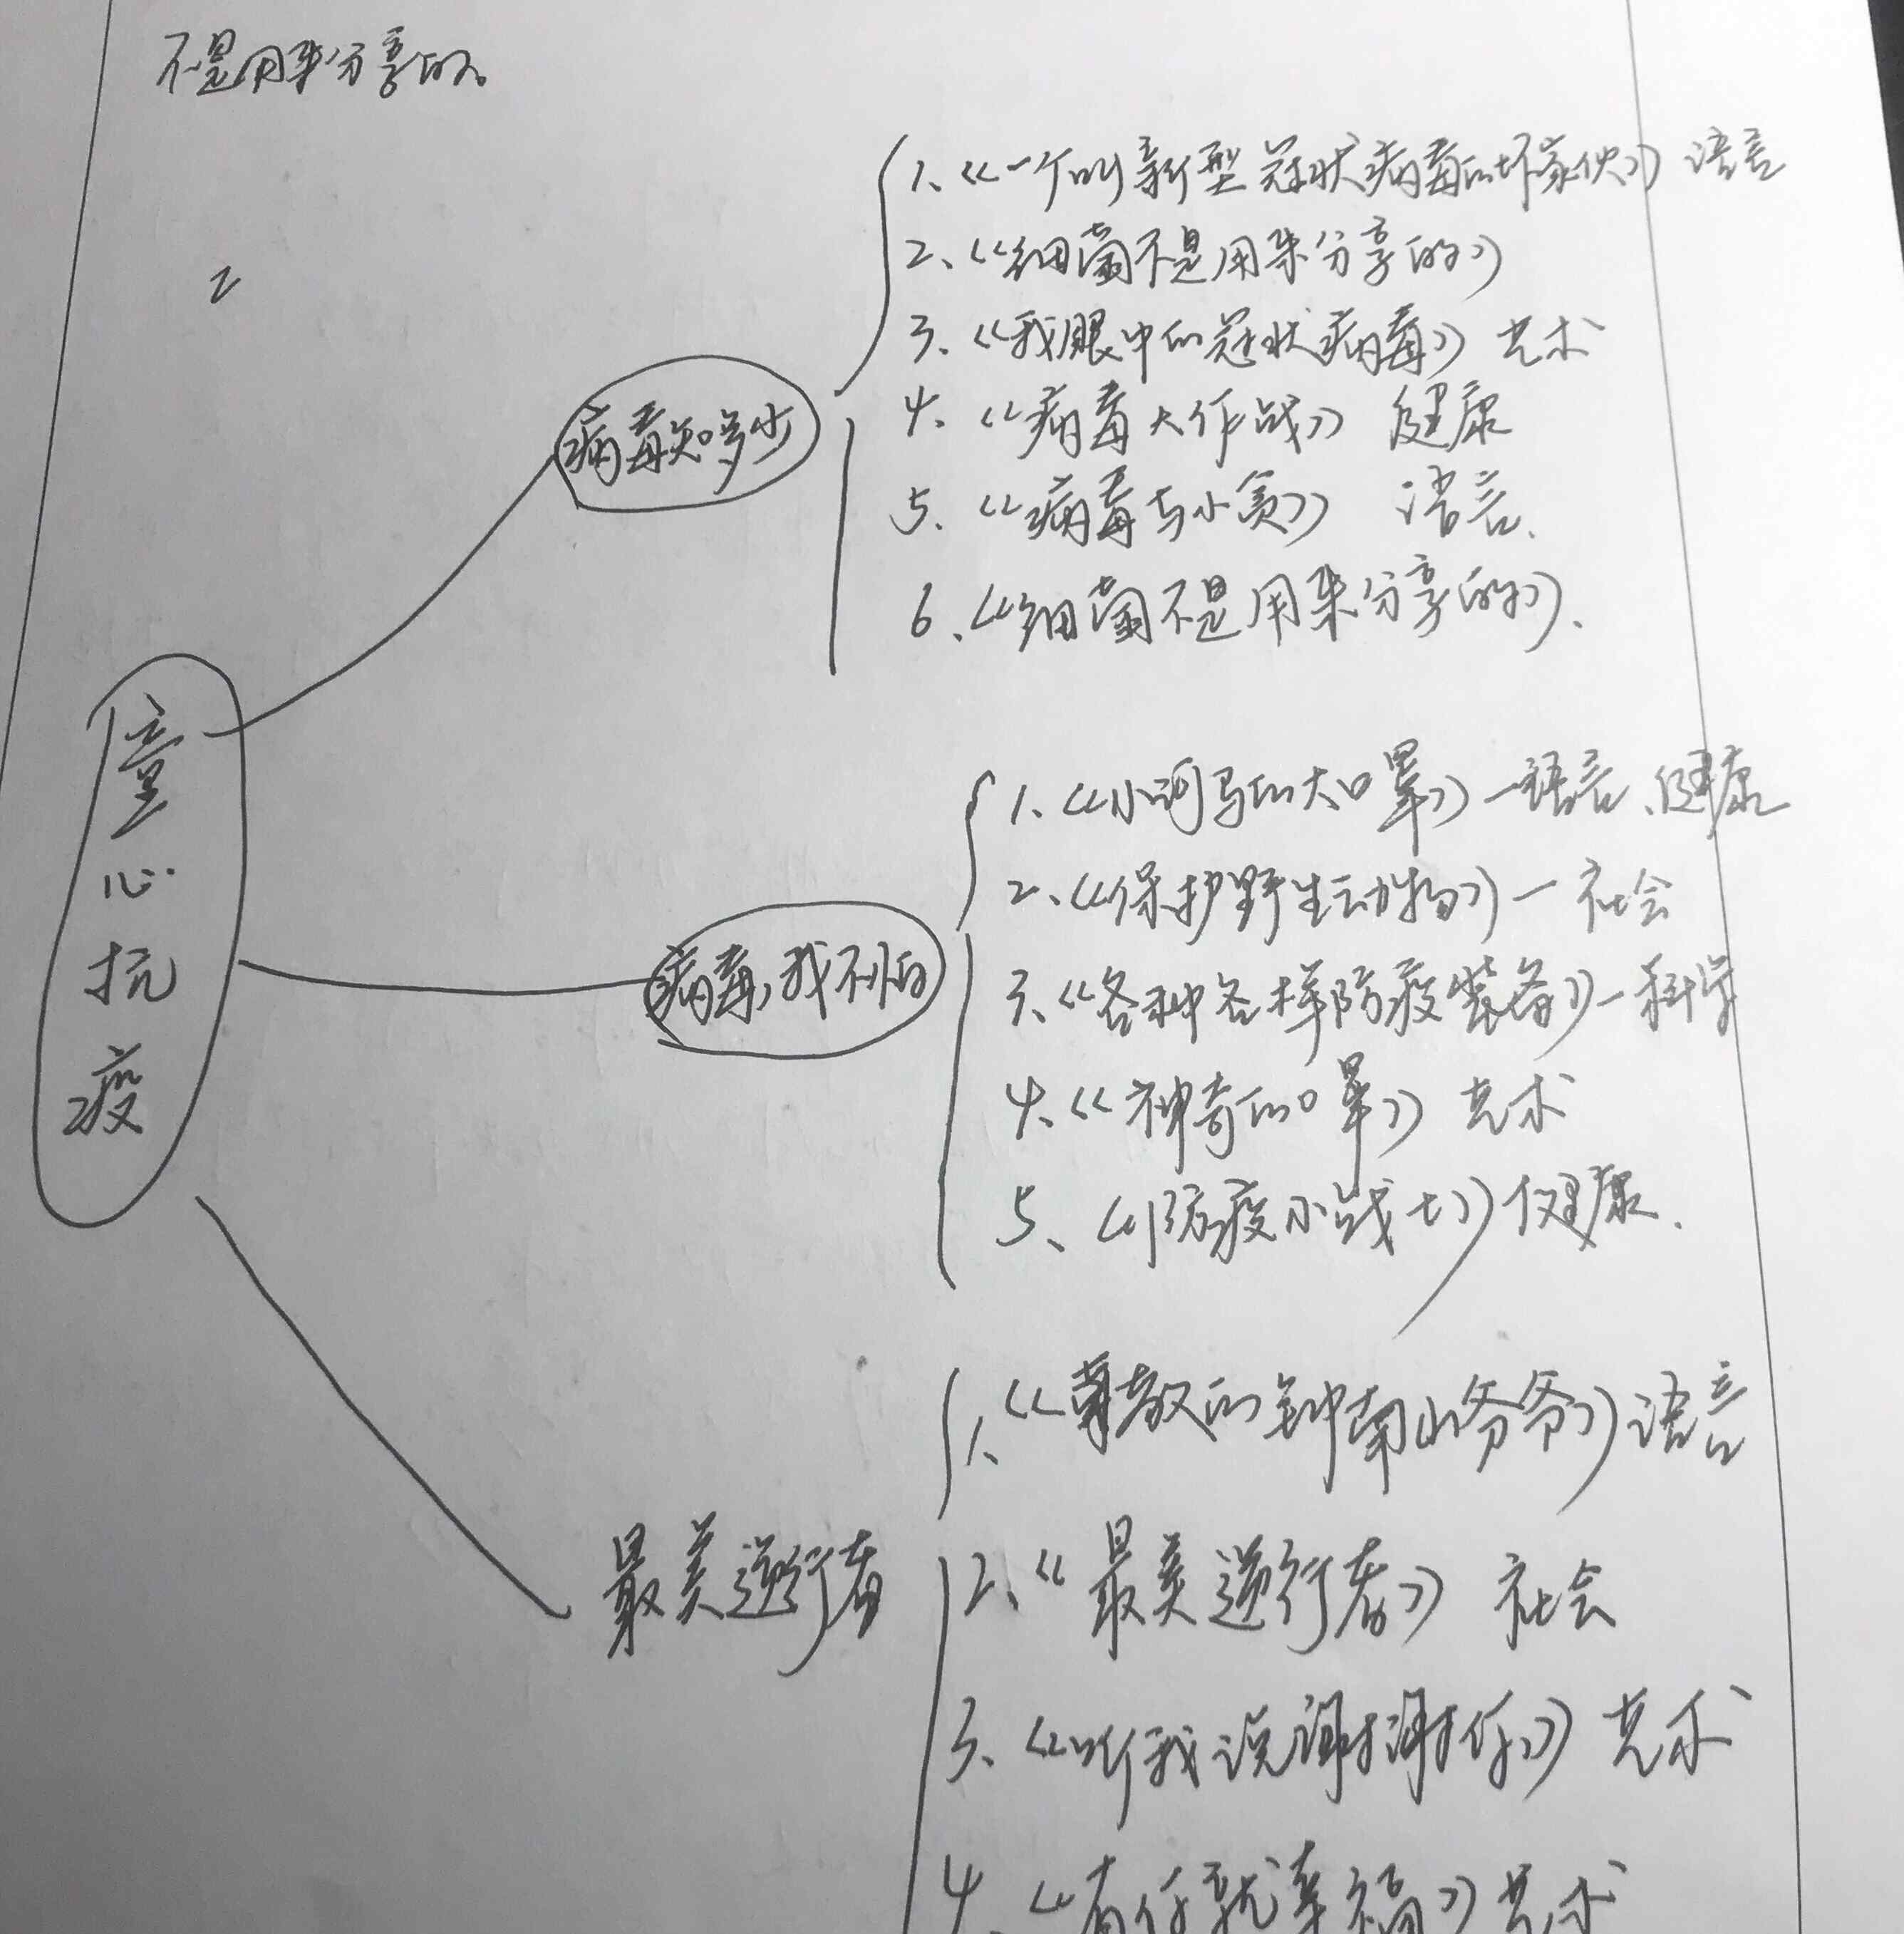 不是用来分享的。
2
童心抗疫
病毒知多少
1、《一个叫新型冠状病毒的坏家伙》 语言
2、《细菌不是用来分享的》
3、《我眼中的冠状病毒》 艺术
4、《病毒大作战》 健康
5、《病毒与小贪》 语言、
6、《细菌不是用来分享的》、
病毒,我不怕
1、《小河马的大口罩》—语言、健康
2、《保护野生动物》— 社会
3、《各种各样防疫装备》—科学
4、《神奇的口罩》 艺术
5、《防疫小战士》健康、
最美逆行者
1、《勇敢的钟南山爷爷》语言
2、《最美逆行者》 社会
3、《听我说谢谢你》 艺术
4、《有你就幸福》艺术